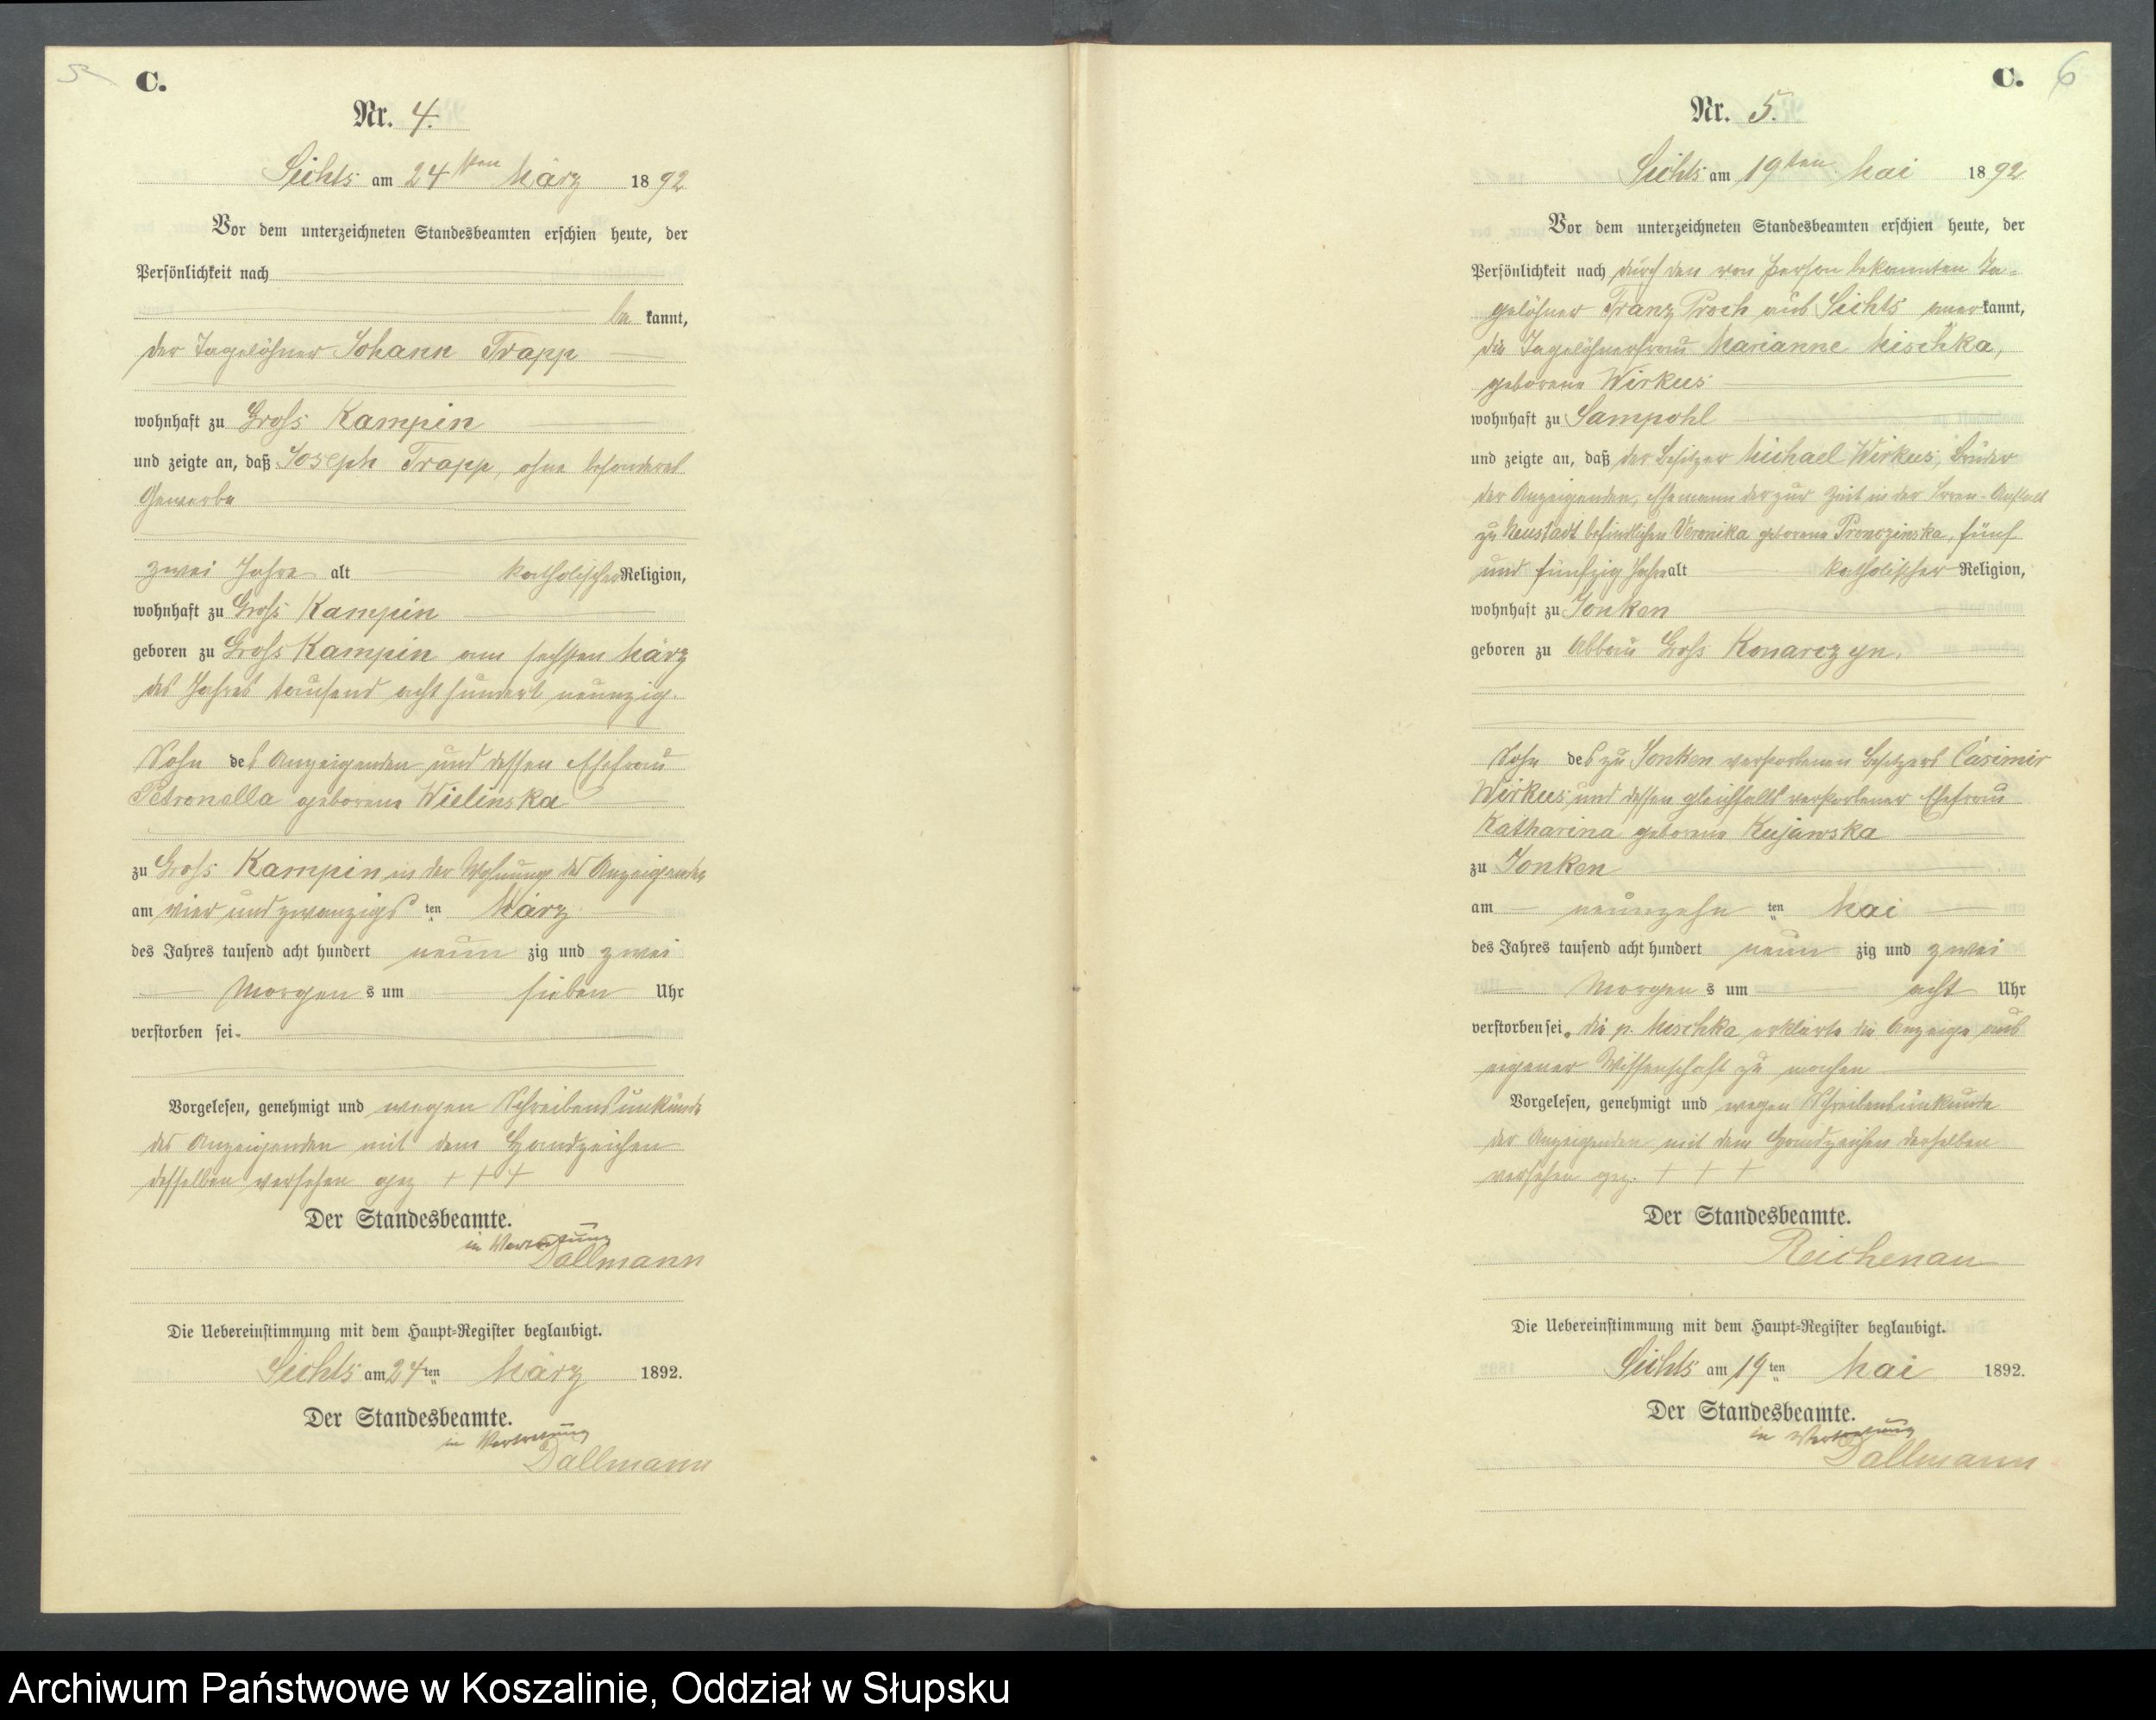 5
C.
Nr. 4.
Sichts am 24ten März 1892
Vor dem unterzeichneten Standesbeamten erschien heute, der
Persönlichkeit nach
be kannt,
der Tagelöhner Johann Trapp
wohnhaft zu Gross Kampin
und zeigte an, daß Joseph Trapp, ohne besonderes
Gewerbe
zwei Jahre alt katholischer Religion,
wohnhaft zu Gross Kampin
geboren zu Gross Kampin am sechsten März
des Jahres tausend acht hundert neunzig.
Sohn des Anzeigenden und dessen Ehefrau
Petronella geborene Wielinska
zu Gross Kampin in der Wohnung des Anzeigenden
am vier und zwanzigsten März
des Jahres tausend acht hundert neun zig und zwei
Morgen s um sieben Uhr
verstorben sei.
Vorgelesen, genehmigt und wegen Schreibensunkunde
des Anzeigenden mit dem Handzeichen
desselben versehen gez + + +
Der Standesbeamte.
in Vertretung
Dallmann
Die Uebereinstimmung mit dem Haupt-Register beglaubigt.
Sichts am 24ten März 1892.
Der Standesbeamte.
in Vertretung
Dallmann
C. 6
Nr. 5.
Sichts am 19ten Mai 1892
Vor dem unterzeichneten Standesbeamten erschien heute, der
Persönlichkeit nach durch den von Person bekannten Ta-
gelöhner Franz Proch aus Sichts anerkannt,
die Tagelöhnerfrau Marianne Mischka,
geborene Wirkus
wohnhaft zu Sampohl
und zeigte an, daß der Besitzer Michael Wirkus, Bruder
der Anzeigenden, Ehemann der zur Zeit in der Irren-Anstalt
zu Neustadt befindlichen Veronika geborene Pronozinska, fünf
und fünfzig Jahre alt katholischer Religion,
wohnhaft zu Jonken
geboren zu Abbau Gross Konarczyn,
Sohn des zu Jonken verstorbenen Besitzers Casimir
Wirkus, und dessen gleichfalls verstorbener Ehefrau
Katharina geborene Kujawska
zu Jonken
am neunzehn ten Mai
des Jahres tausend acht hundert neun zig und zwei
Morgen s um acht Uhr
verstorben sei. die p. Mischka erklärte die Anzeige aus
eigener Wissenschaft zu machen
Vorgelesen, genehmigt und wegen Schreibensunkunde
der Anzeigenden mit dem Handzeichen derselben
versehen gez. + + +
Der Standesbeamte.
Reichenau
Die Uebereinstimmung mit dem Haupt-Register beglaubigt.
Sichts am 19ten Mai 1892.
Der Standesbeamte.
in Vertretung
Dallmann
Archiwum Państwowe w Koszalinie, Oddział w Słupsku